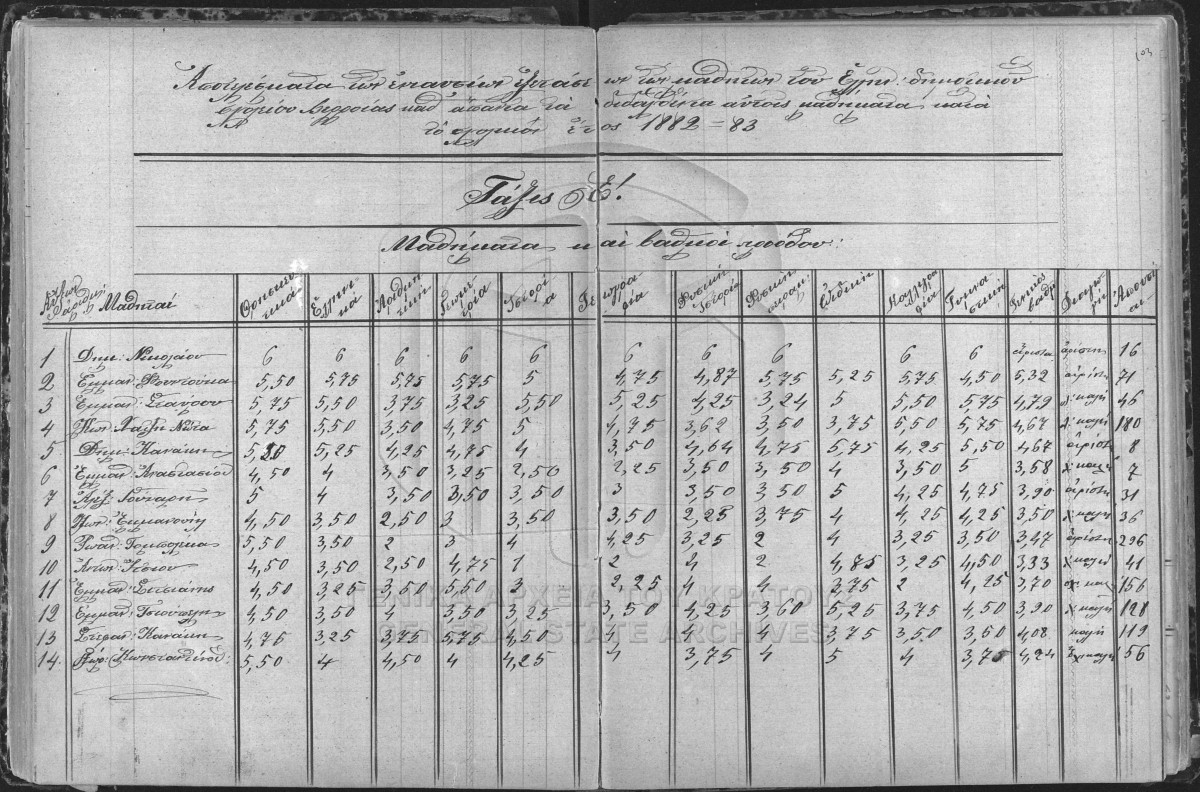 103
Ἀποτελέσματα τῶν ἐνιαυσίων ἐξετάσεων τῶν μαθητῶν τοῦ Ἑλλην: δημοτικοῦ
σχολείου Βερροίας καθ' ἅπαντα τὰ διδαχθέντα αὐτοῖς μαθήματα κατὰ
τὸ σχολικὸν ἔτος 1882=83
Τάξις Ε!
Μαθήματα καὶ βαθμοὶ προόδου:
Μαθηταί Θρησκευτικά Ἑλληνικά Ἀριθμητική Γεωμετρία Ἱστορία Γεωγραφία Φυσικὴ Ἱστορία Φυσικὴ πειραμ. Ὠδική Καλλιγραφία Γυμναστική Γενικὸς βαθμ. Διαγωγή Ἀπουσίαι
1 Δημ: Νικολάου 6 6 6 6 6 6 6 6 6 6 ἄριστα ἀρίστη 16
2 Ἐμμαν: Φουντούκα 5,50 5,75 5,75 5,75 5 4,75 4,87 5,75 5,25 5,75 4,50 5,32 ἀρίστη 71
3 Ἐμμαν: Σταύρου 5,75 5,50 3,75 3,25 5,50 5,25 4,25 3,24 5 5,50 5,75 4,79 καλή 46
4 Κων: Χατζῆ Νώτα 5,75 5,50 3,50 4,75 5 4,75 3,62 3,50 3,75 5,50 5,75 4,67 καλή 180
5 Δημ: Κανάκη 5,50 5,25 4,25 4,75 4 3,50 4,64 4,75 5,75 4,25 5,50 4,67 ἀρίστη 8
6 Ἐμμαν: Ἀναστασίου 4,50 4 3,50 3,25 2,50 2,25 3,50 3,50 4 3,50 5 3,58 χ. καλή 7
7 5 4 3,50 3,50 3,50 3 3,50 3,50 5 4,25 4,75 3,90 ἀρίστη 31
8 Ἐμμανουήλ 4,50 3,50 2,50 3 3,50 3,50 2,25 3,75 4 4,25 4,25 3,50 χ. καλή 36
9 5,50 3,50 2 3 4 4,25 3,25 2 4 3,25 3,50 3,47 ἀρίστη 296
10 Ἀντων: 4,50 3,50 2,50 4,75 1 2 4 2 4,85 3,25 4,50 3,33 χ καλή 41
11 Ἐμμαν: 4,50 3,25 3,50 5,50 3 2,25 4 4 3,75 2 4,25 3,70 χ καλ 156
12 Ἐμμαν: 4,50 3,50 4 3,50 3,25 3,50 4,25 3,60 5,25 3,75 4,50 3,90 χ. καλή 128
13 Στεφαν: Κανάκη 4,75 3,25 3,75 5,75 4,50 4 4 4 3,75 3,50 3,60 4,08 καλή 119
14. Κωνσταντίνου: 5,50 4 4,50 4 4,25 4 3,75 4 5 4 3,75 4,24 καλή 56
ΓΕΝΙΚΑ ΑΡΧΕΙΑ ΤΟΥ ΚΡΑΤΟΥΣ
GENERAL STATE ARCHIVES